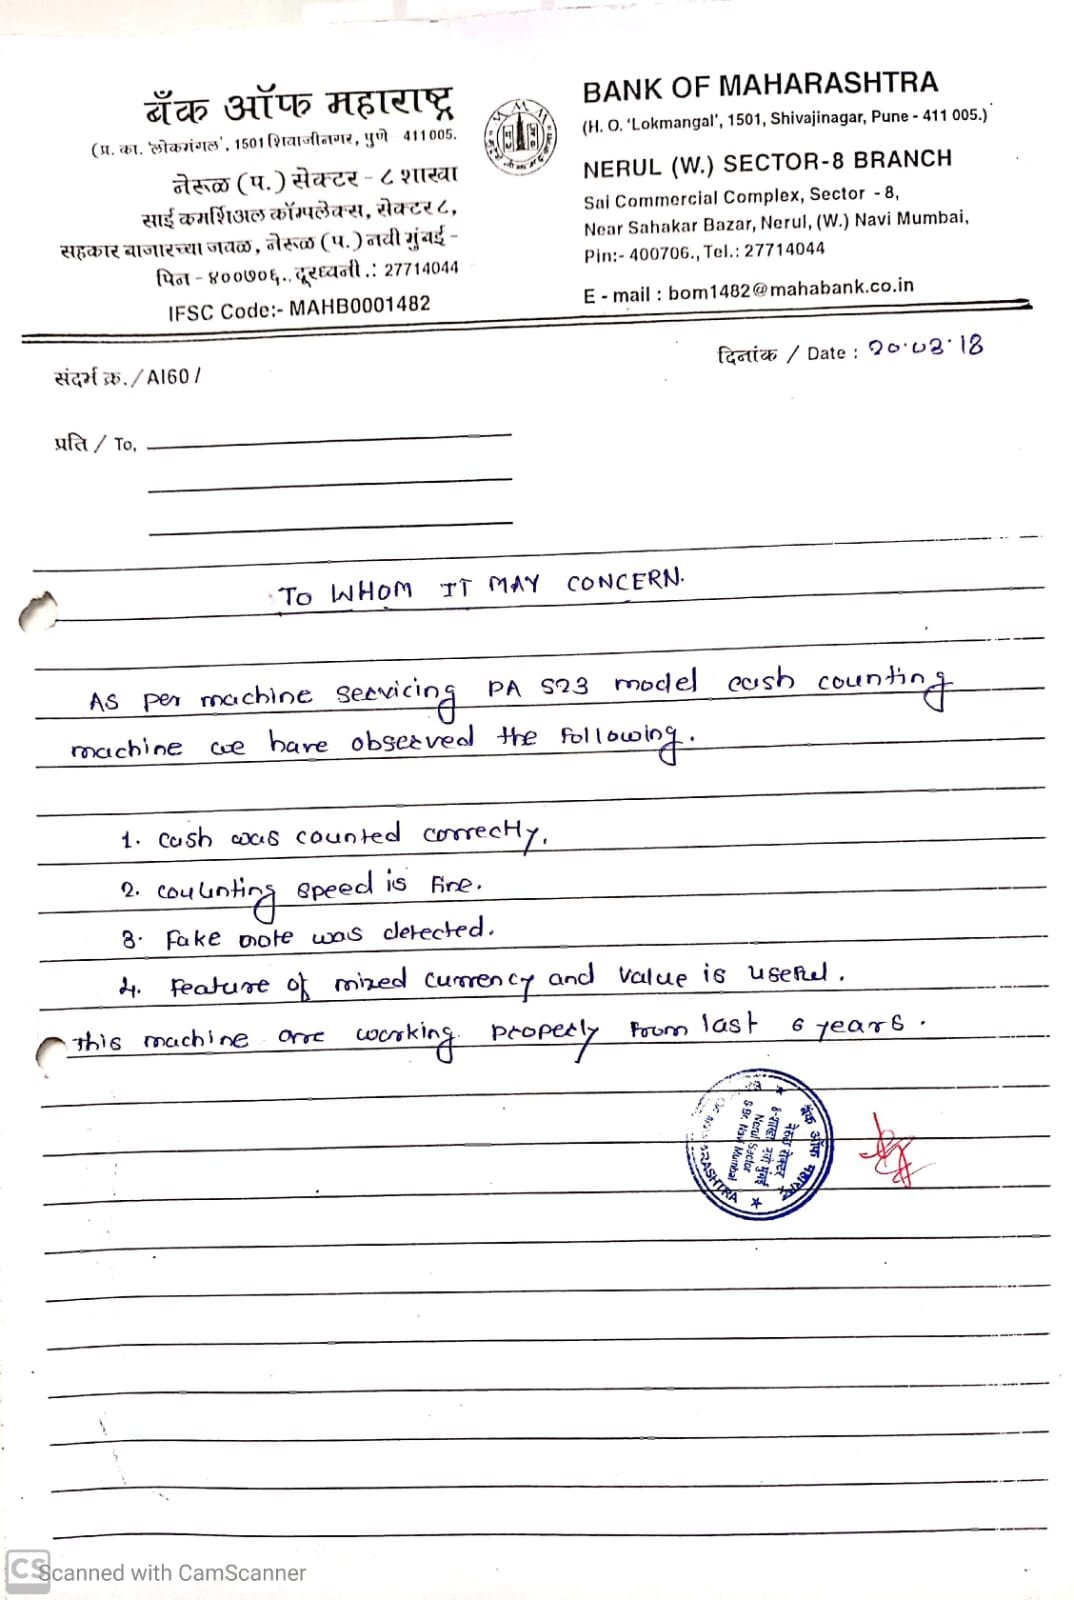 बँक ऑफ महाराष्ट्र
(प्र. का. 'लोकमंगल', 1501 शिवाजीनगर, पुणे 411005.
नेरूळ (प.) सेक्टर - ८ शाखा
साई कमर्शिअल कॉम्पलेक्स, सेक्टर ८,
सहकार बाजारच्या जवळ, नेरूळ (प.) नवी मुंबई -
पिन - ४००७०६., दूरध्वनी .: 27714044
IFSC Code:- MAHB0001482
BANK OF MAHARASHTRA
(H. O. 'Lokmangal', 1501, Shivajinagar, Pune - 411 005.)
NERUL (W.) SECTOR-8 BRANCH
Sai Commercial Complex, Sector - 8,
Near Sahakar Bazar, Nerul, (W.) Navi Mumbai,
Pin:- 400706., Tel.: 27714044
E - mail : bom1482@mahabank.co.in
संदर्भ क्र. / AI60 /
दिनांक / Date : 20.03.18
प्रति / To,
TO WHOM IT MAY CONCERN.
As per machine servicing PA 523 model cash counting
machine we have observed the following.
1. cash was counted correctly.
2. coulnting speed is fine.
3. Fake note was detected.
4. Feature of mixed currency and value is useful.
This machine are working properly from last 6 years.
बँक ऑफ महाराष्ट्र
Nerul Sector
8-Br. Navi Mumbai
CS Scanned with CamScanner